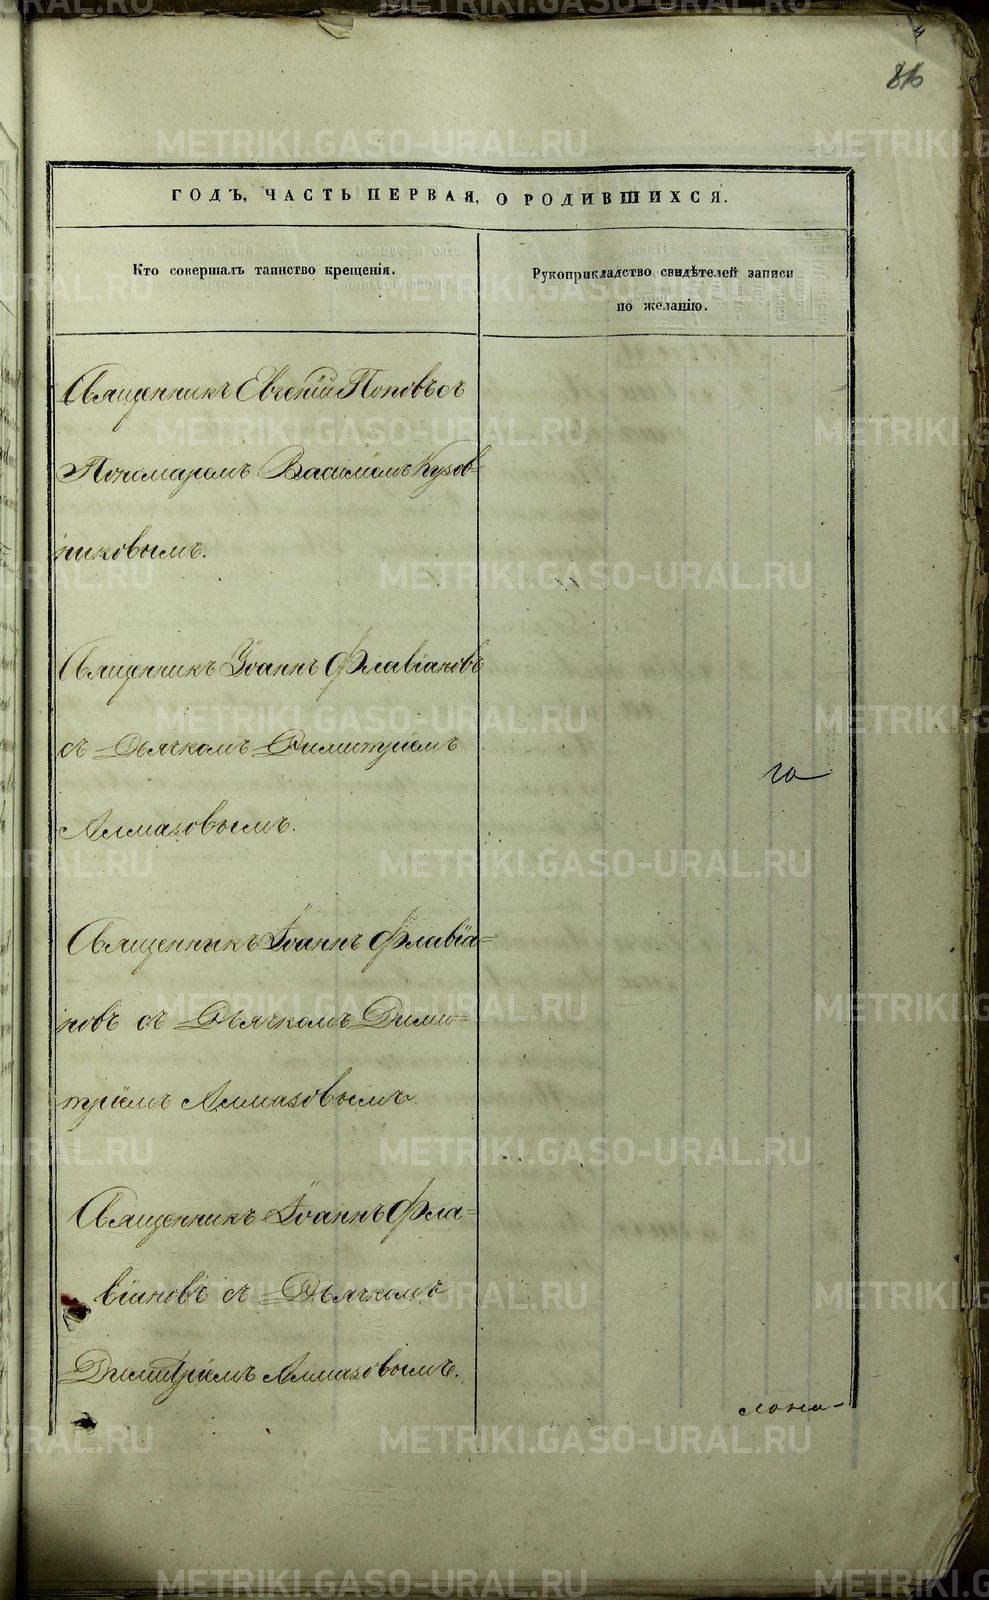 4
ГОДЪ, ЧАСТЬ ПЕРВАЯ, О РОДИВШИХСЯ.
Кто совершалъ таинство крещенія.
Рукоприкладство свидѣтелей записи
по желанію.
Священникъ Евгеній Поповъ съ
Пономаремъ Василіемъ Кузов-
никовымъ.
Священникъ Іоаннъ Флавіановъ
съ Дьячкомъ Димитріемъ
Алмазовымъ.
го
Священникъ Іоаннъ Флавіа-
новъ съ Дьячкомъ Дими-
тріемъ Алмазовымъ.
Священникъ Іоаннъ Фла-
віановъ съ Дьячкомъ
Димитріемъ Алмазовымъ.
METRIKI.GASO-URAL.RU